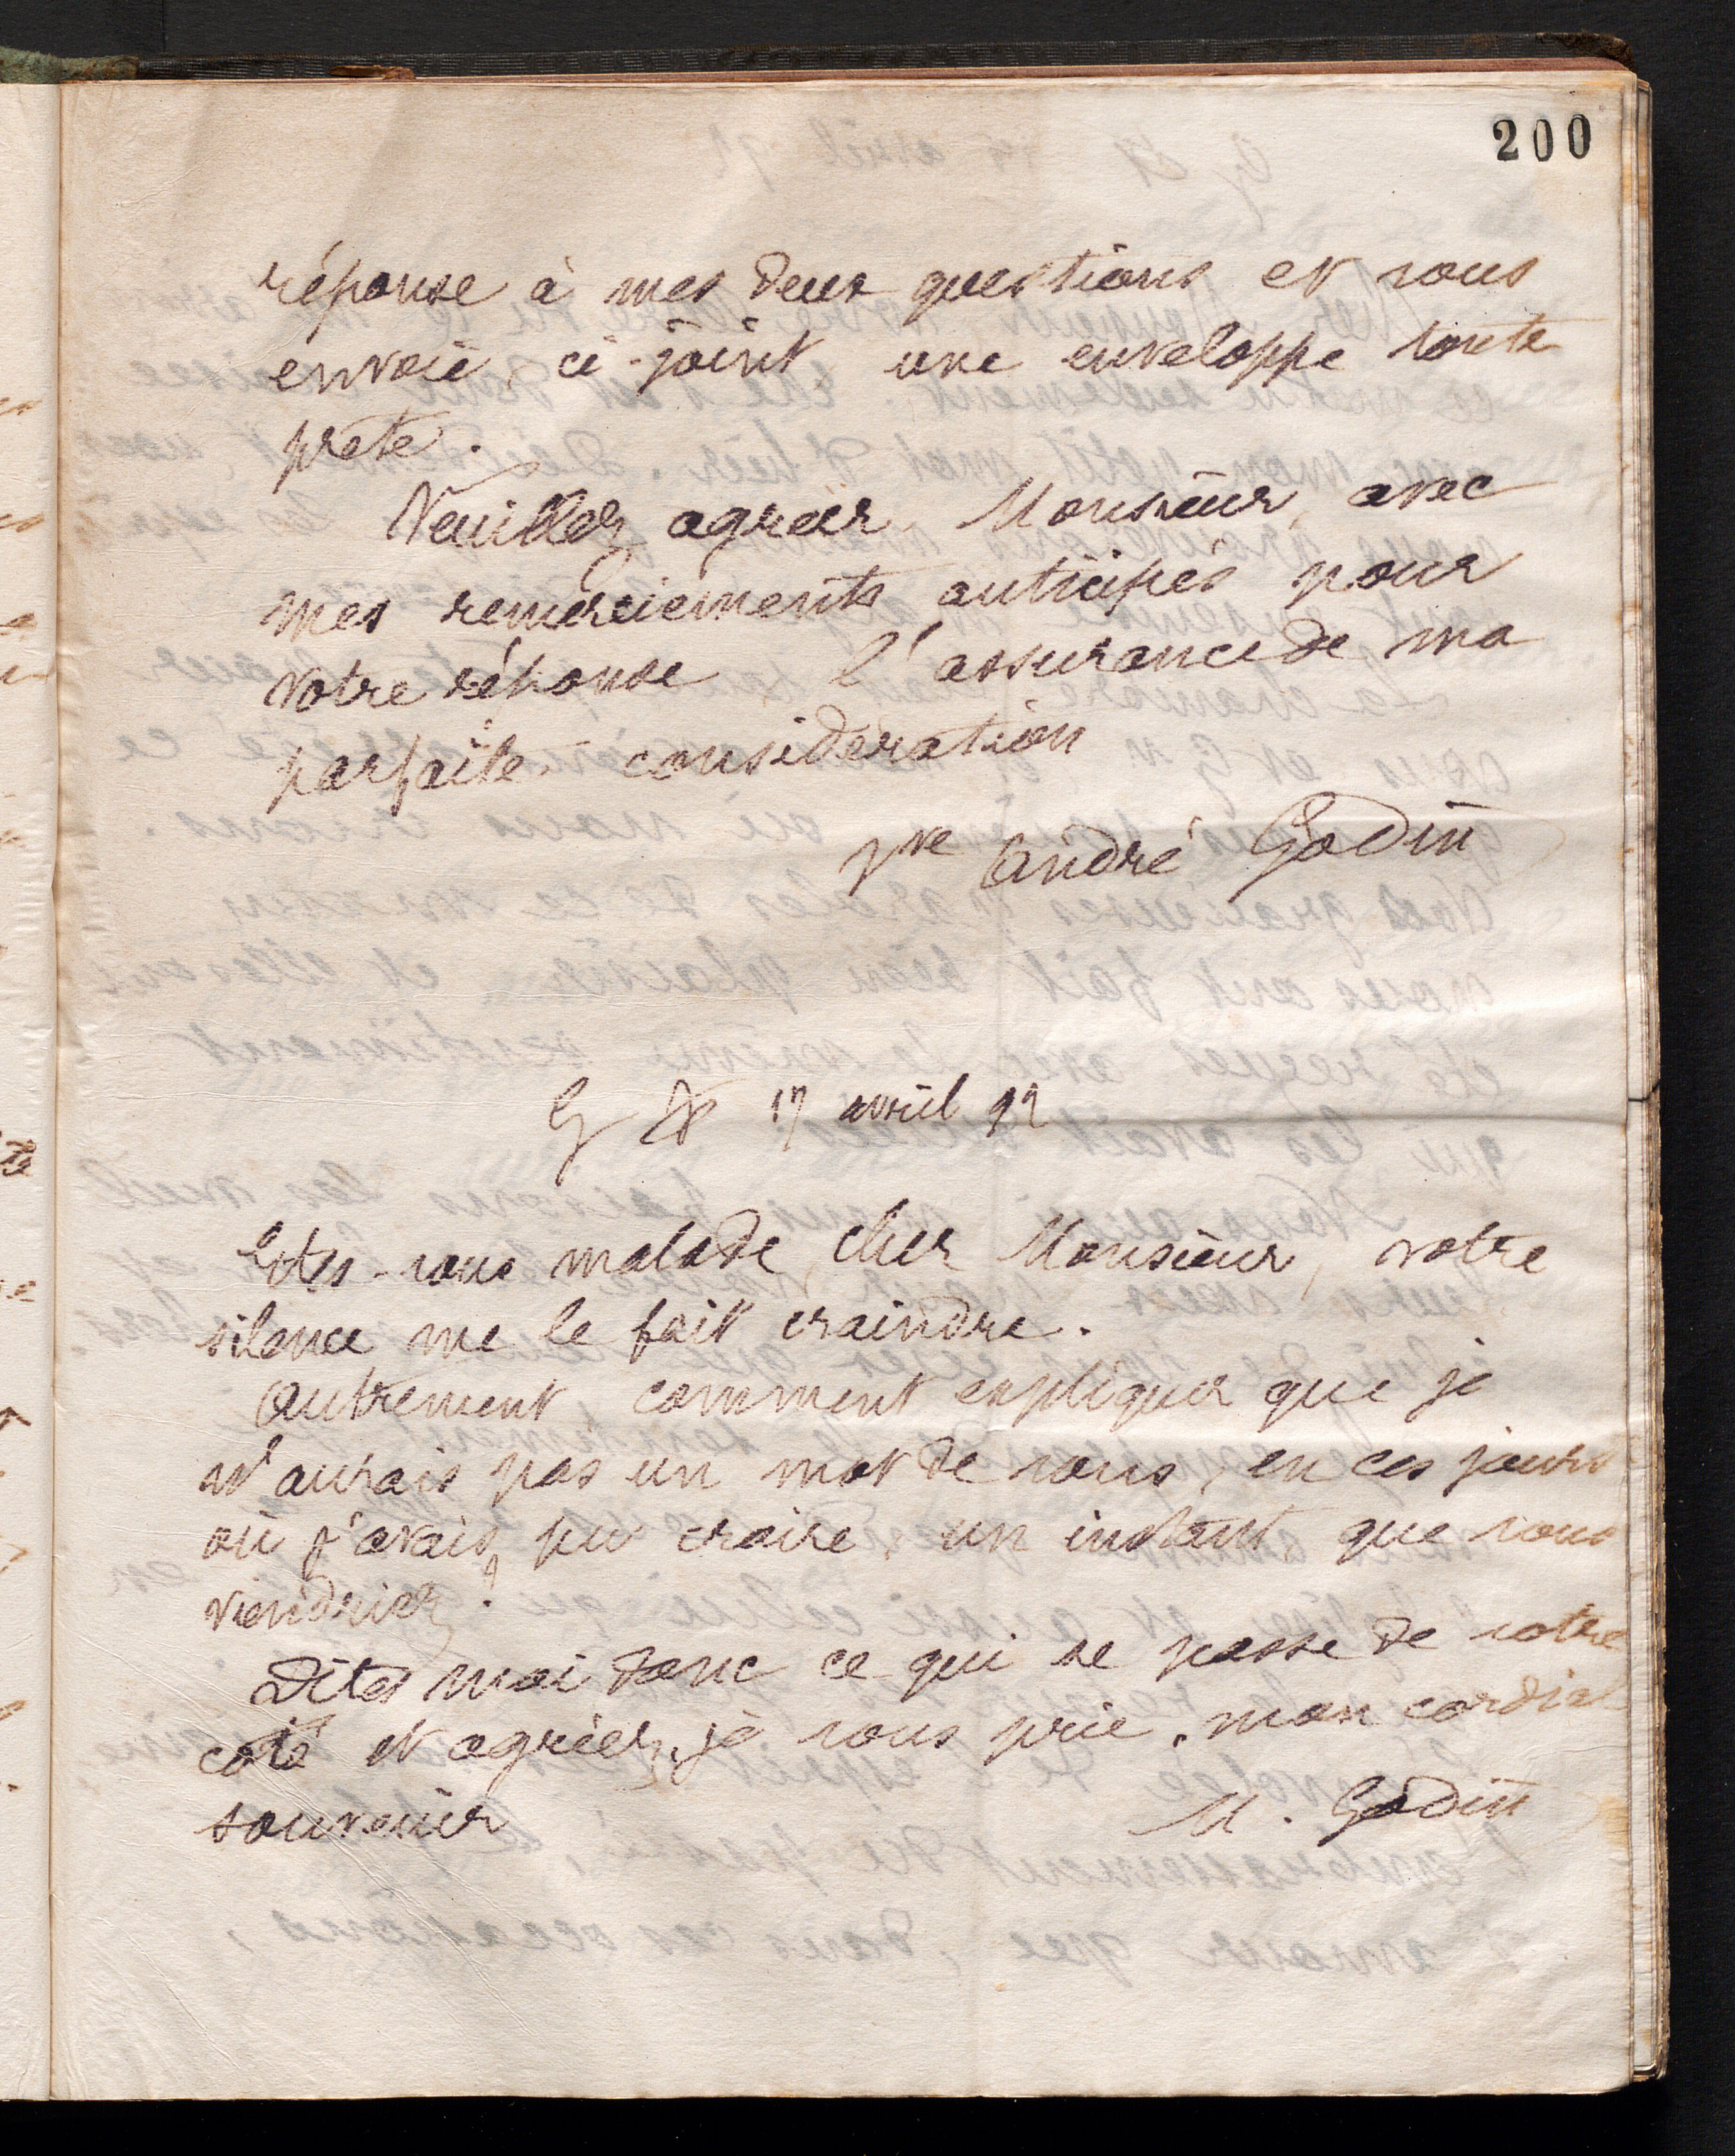 200
réponse à mes deux questions et vous
envoie, ci-joint, une enveloppe toute
prete.
Veuillez agréer, Monsieur, avec
mes remerciements anticipés pour
votre réponse l'assurance de ma
parfaite considération
Vve André Godin
17 avril 92
Etes-vous malade, cher Monsieur, votre
silence me le fait craindre.
Autrement comment expliquer que je
n'aurais pas un mot de vous, en ces jours
où j'avais pu croire, un instant, que vous
viendriez?
Dites moi donc ce qui se passe de votre
coté et agréez, je vous prie, mon cordial
souvenir
M. Godin